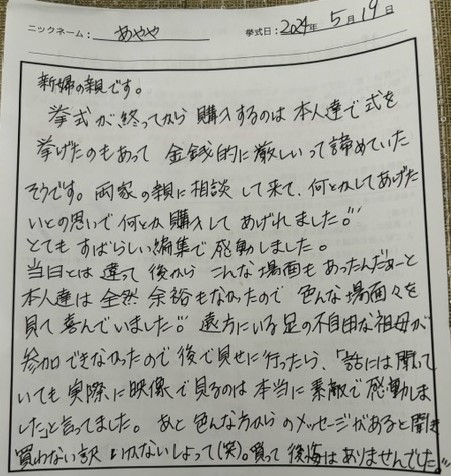 ニックネーム： あやや 挙式日： 2024年 5月 19日
新婦の親です。
挙式が終ってから購入するのは本人達で式を
挙げたのもあって 金銭的に厳しいって諦めていた
そうです。両家の親に相談して来て、何とかしてあげた
いとの思いで何とか購入してあげれました!!
とてもすばらしい編集で感動しました。
当日とは違って後からこんな場面もあったんだぁーと
本人達は全然余裕もなかったので色んな場面々を
見て喜んでいました!! 遠方にいる足の不自由な祖母が
参加できなかったので後で見せに行ったら、「話には聞いて
いても実際に映像で見るのは本当に素敵で感動しま
した」と言ってました。あと色んな方からのメッセージがあると聞き
買わない訳いけないしょって(笑)。買って後悔はありませんでした!!